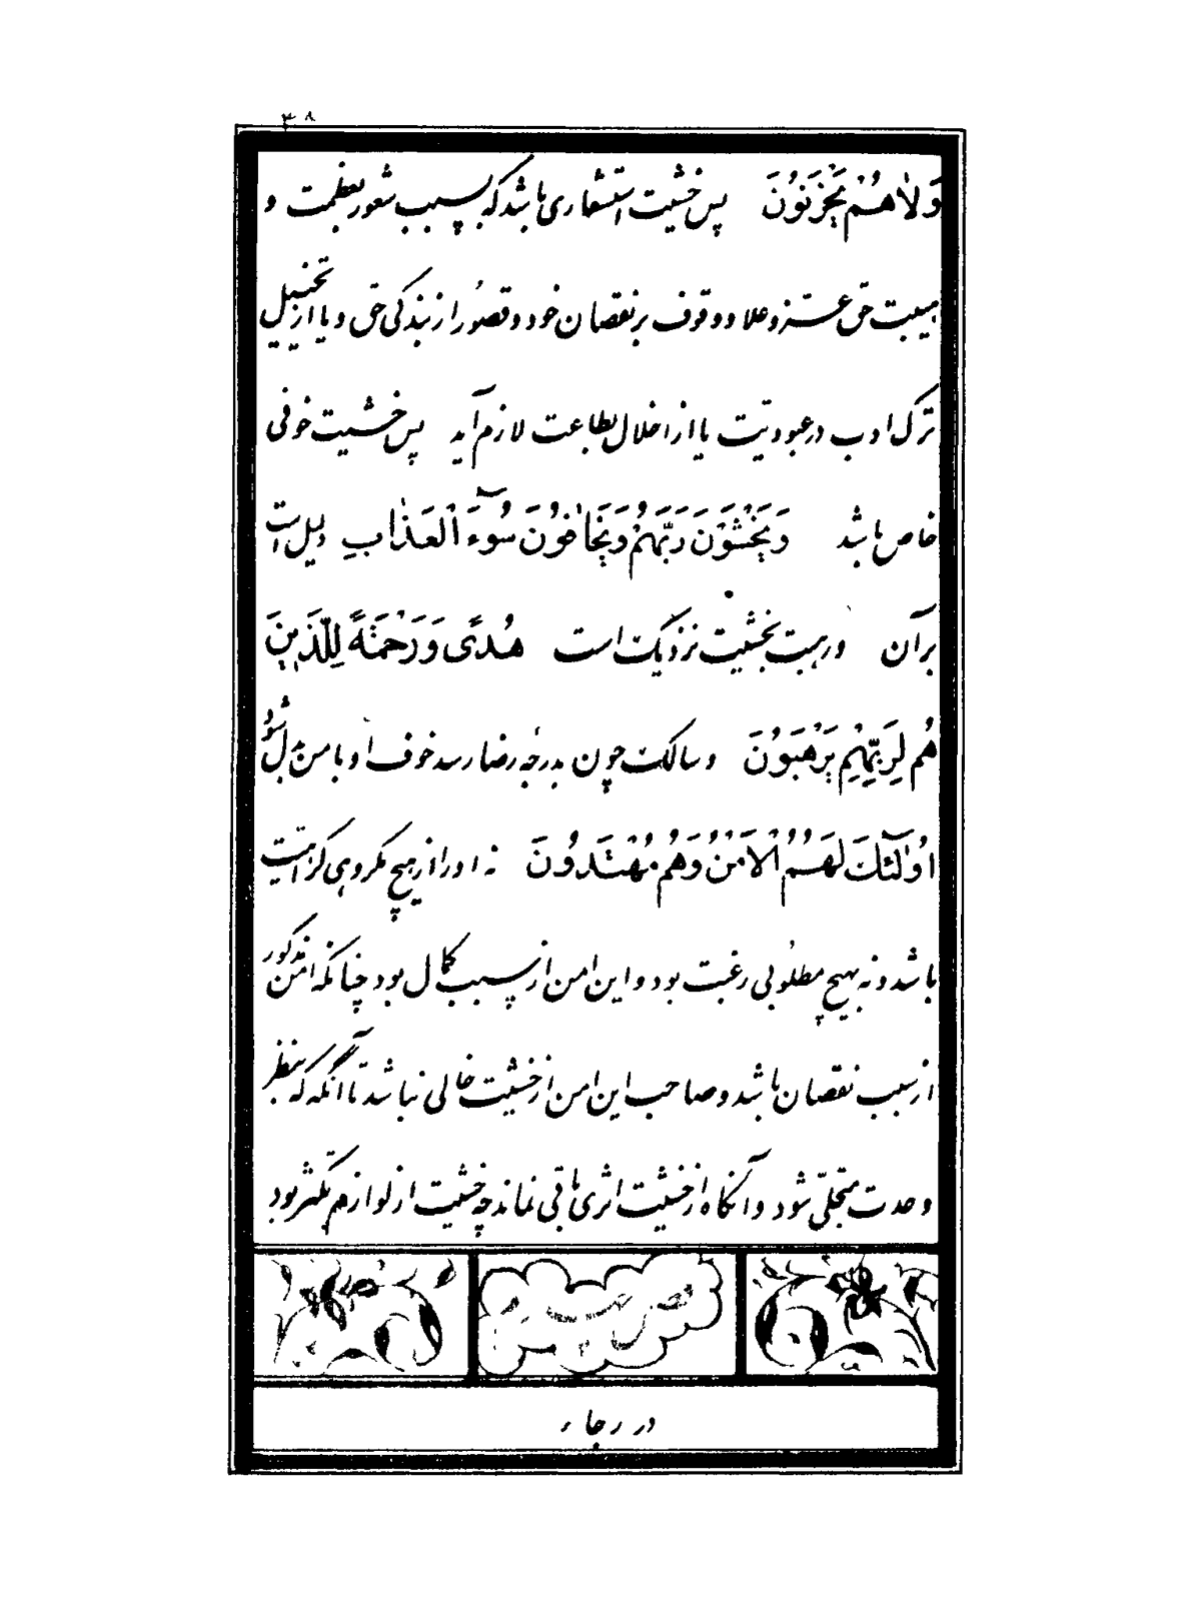 ۴۸
وَلاٰهُمْ يَحْزَنُونَ پس خشیت استشعاری باشد که بسبب شعور بعظمت و
هیبت حق عزّ و علا و وقوف بر نقصان خود و قصُور از بندگی حق و یا از تخییل
ترک ادب در عبودیّت یا از اخلال بطاعت لازم آید پس خشیت خوفی
خاص باشد وَيَخْشَوْنَ رَبَّهُمْ وَيَخٰافُونَ سُوۤءَ الْعَذٰابِ دلیل است
بر آن و رهبت بخشیت نزدیک است هُدًى وَرَحْمَةً لِلَّذَينَ
هُم لِرَبِّهِمْ يَرْهَبُونَ و سالک چون بدرجه رضا رسد خوف او بامن بدل شود
اُوۤلٰئكَ لَهُمُ الْاَمْنُ وَهُم مُهْتَدُونَ نه او را از هیچ مکروهی کراهیت
باشد و نه بهیچ مطلُوبی رغبت بود و این امن از سبب کمال بود چنانکه امن مذکور
از سبب نقصان باشد و صاحب این امن از خشیت خالی نباشد تا آنگه که بنظر
وحدت متجلّی شود و آنگاه از خشیت اثری باقی نماند چه خشیت از لوازم تکثّر بود
فصل
در رجاء